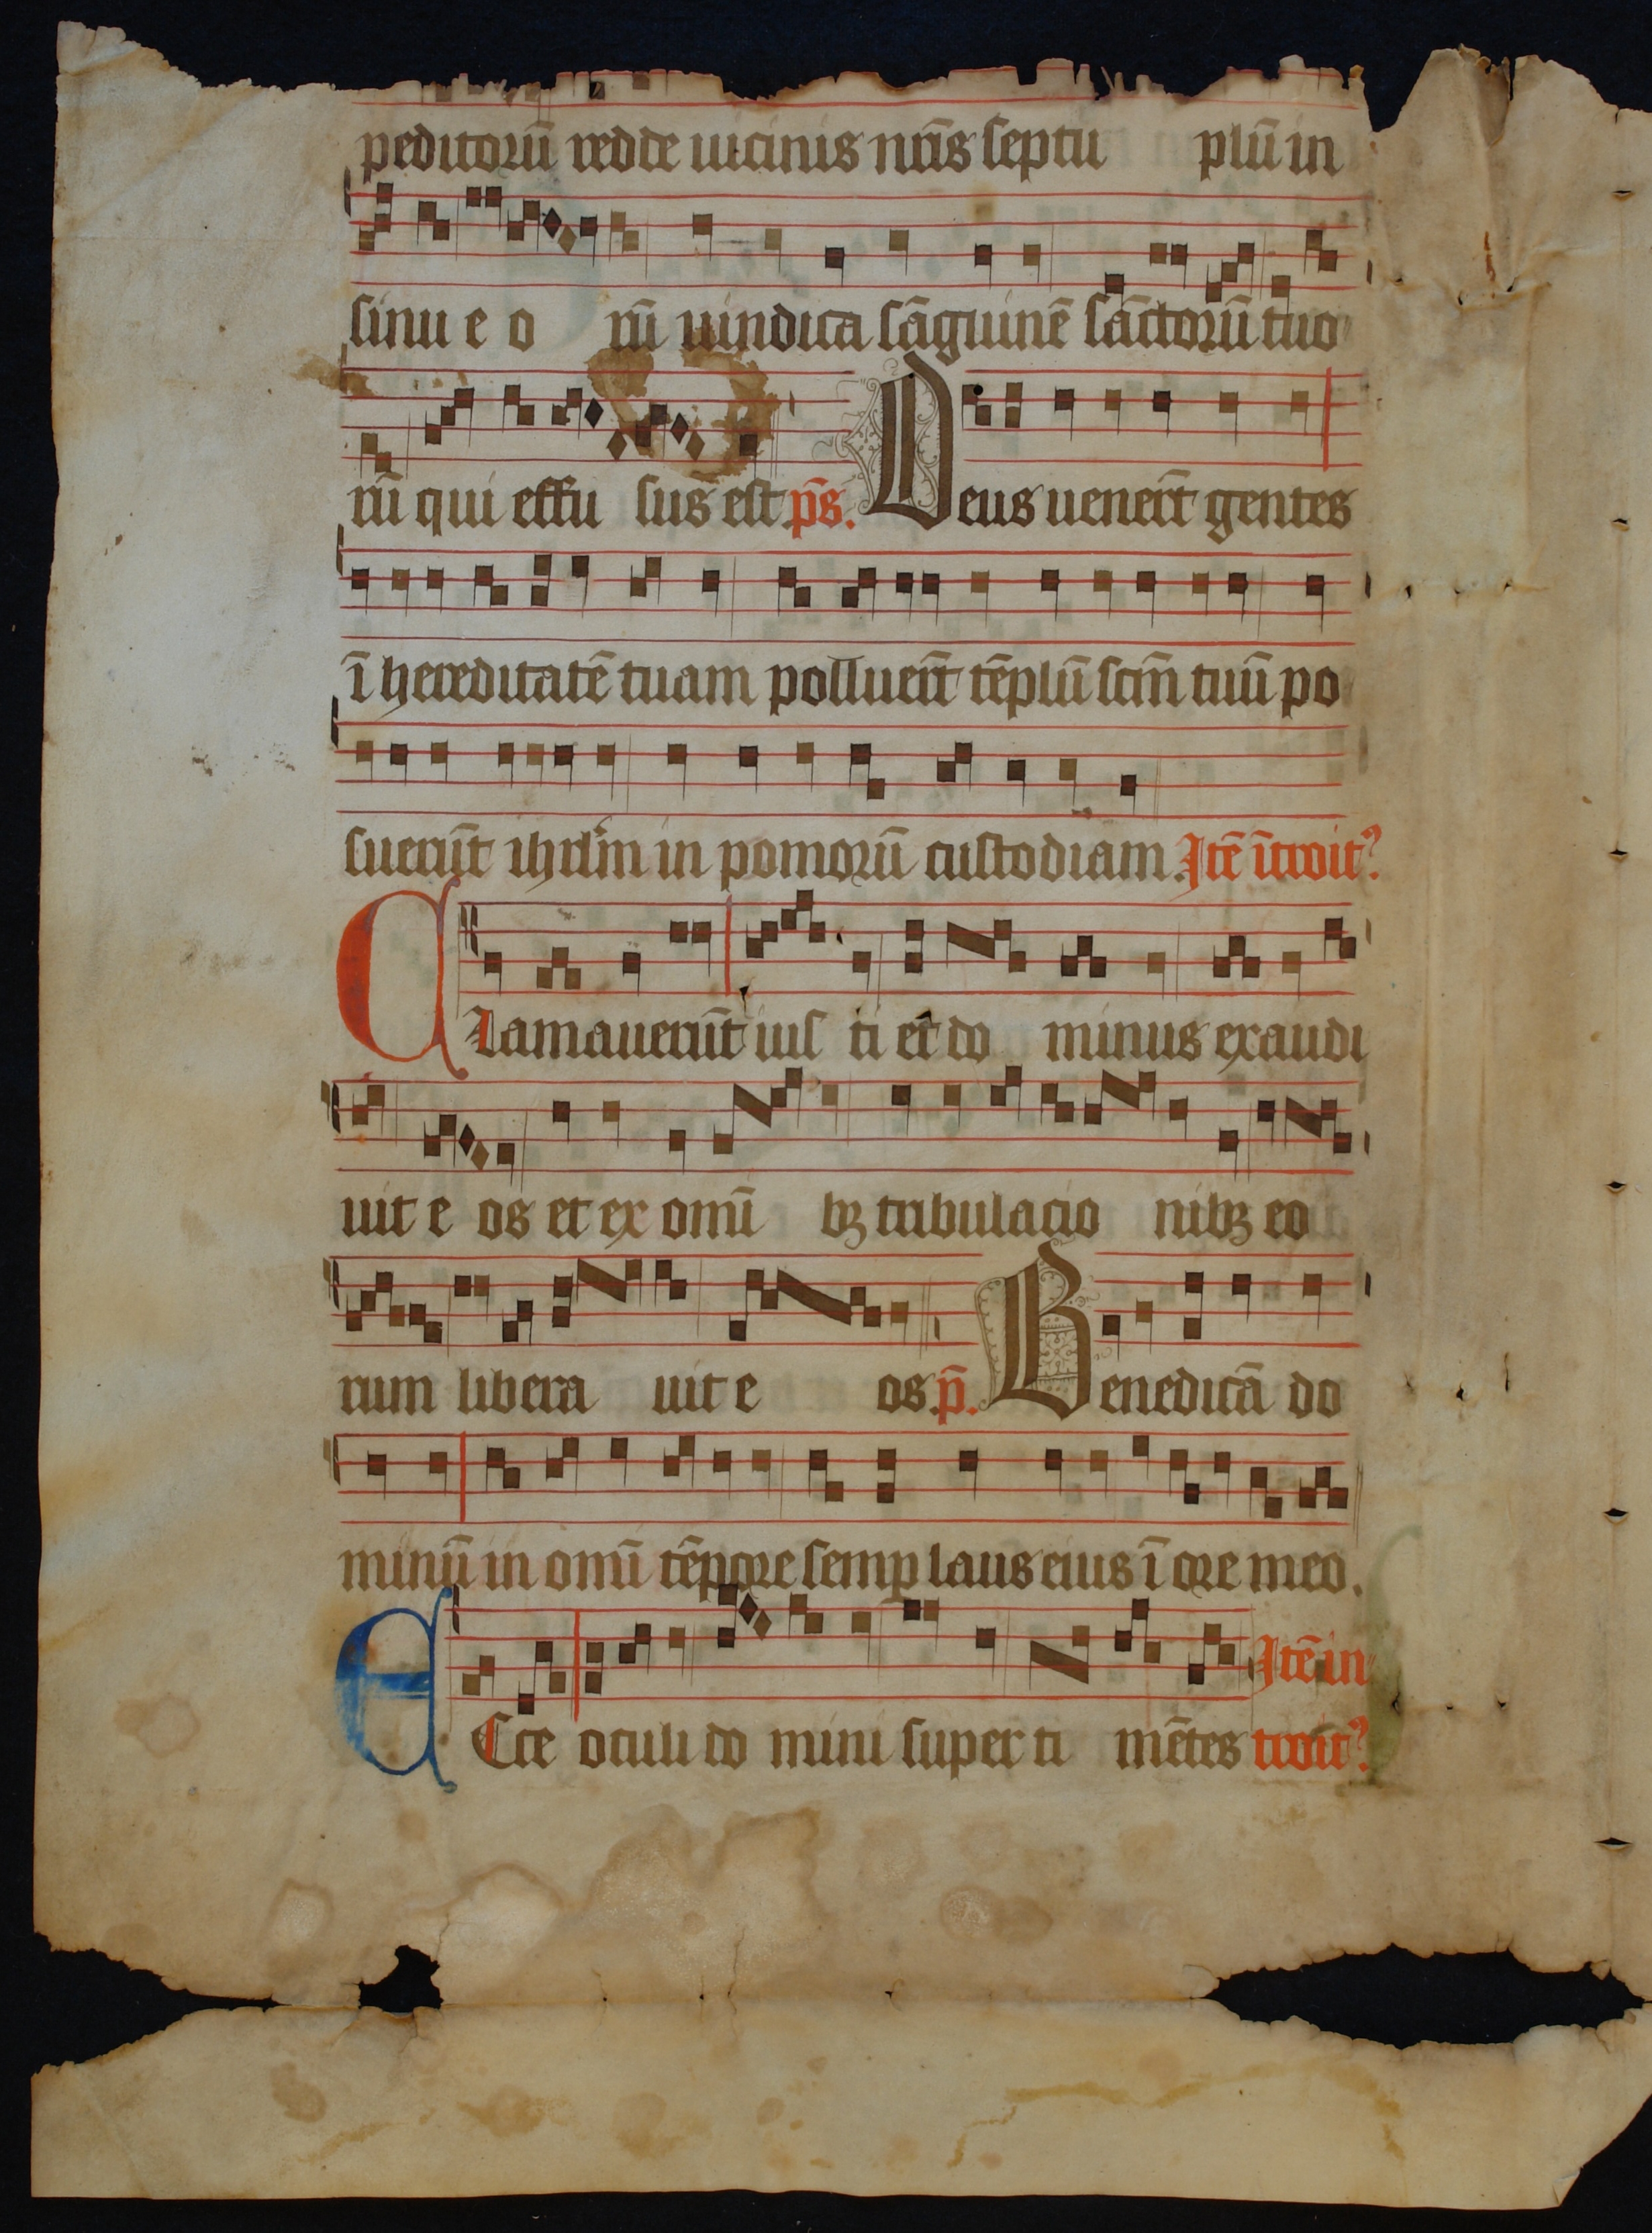 peditorū redde uicinis nr̄is septu plū in
sinu e o rū uindica sāguinē sāctorū tuo
rū qui effu sus est p̄s. Deus uener̄t gentes
ī hereditatē tuam polluer̄t tēplū scm̄ tuū po
suerūt ihrl̄m in pomorū custodiam. Itē ītroit᾽
Clamauerūt ius ti et do minus exaudi
uit e os et ex omī bꝫ tribulacio nibꝫ eo
rum libera uit e os. p̄. Benedicā do
minū in omī tēpore semꝑ laus eius ī ore meo.
Itē in
Ecce oculi do mini super ti mētes troit᾽